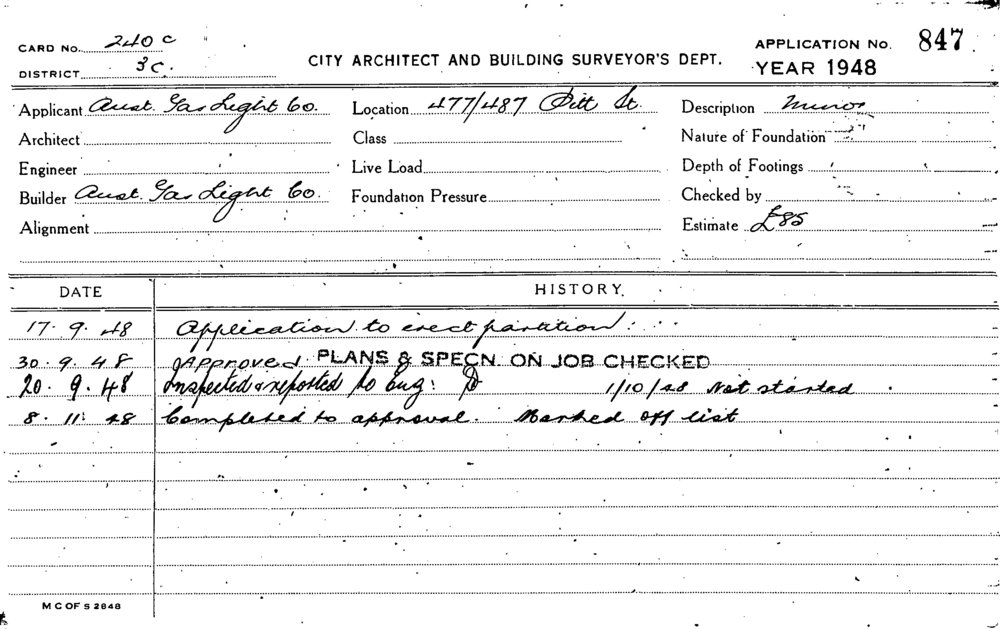 CARD NO. 240 C
DISTRICT 3C.
CITY ARCHITECT AND BUILDING SURVEYOR'S DEPT.
APPLICATION NO. 847
YEAR 1948
Applicant Aust. Gas Light Co. Location 477/487 Pitt St. Description Minor
Architect Class Nature of Foundation
Engineer Live Load Depth of Footings
Builder Aust. Gas Light Co. Foundation Pressure Checked by
Alignment Estimate £85
DATE HISTORY
17. 9. 48 Application to erect partition.
30. 9. 48 Approved PLANS & SPECN. ON JOB CHECKED
20. 9. 48 Inspected & reported to Eng: 1/10/48 Not started
8. 11. 48 Completed to approval. Marked off list
M C OF S 2848